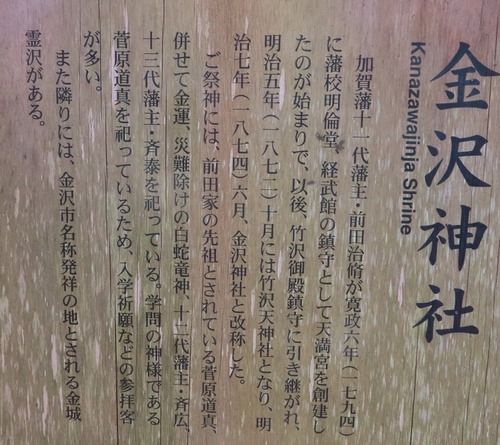 金沢神社
Kanazawajinja Shrine
加賀藩十一代藩主・前田治脩が寛政六年(一七九四)
に藩校明倫堂、経武館の鎮守として天満宮を創建し
たのが始まりで、以後、竹沢御殿鎮守に引き継がれ、
明治五年(一八七二)十月には竹沢天神社となり、明
治七年(一八七四)六月、金沢神社と改称した。
ご祭神には、前田家の先祖とされている菅原道真、
併せて金運、災難除けの白蛇竜神、十二代藩主・斉広、
十三代藩主・斉泰を祀っている。学問の神様である
菅原道真を祀っているため、入学祈願などの参拝客
が多い。
また隣りには、金沢市名称発祥の地とされる金城
霊沢がある。